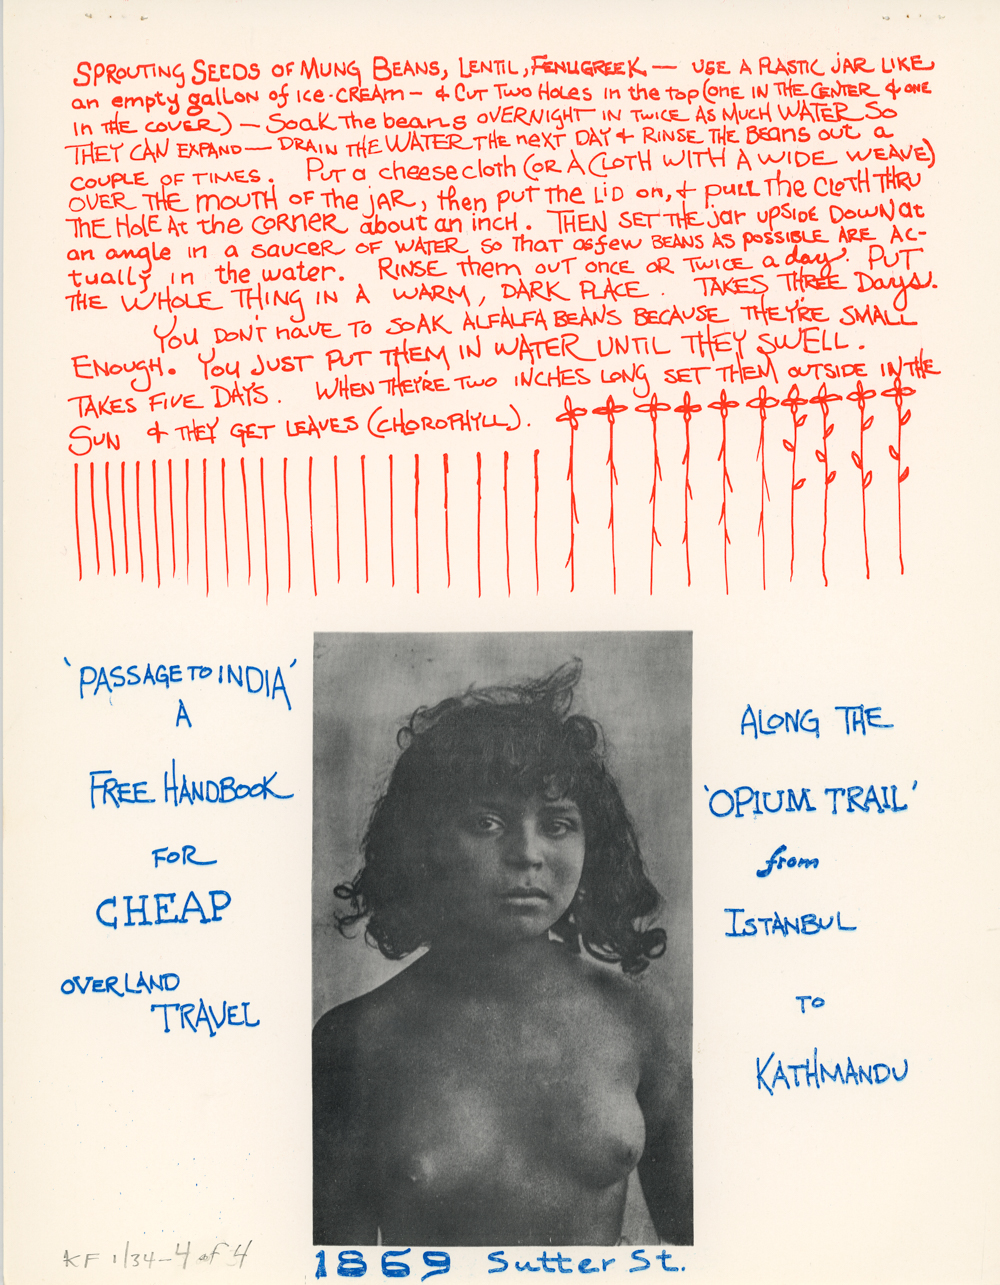 SPROUTING SEEDS OF MUNG BEANS, LENTIL, FENUGREEK — USE A PLASTIC JAR LIKE
an empty gallon of ice-cream — & cut two holes in the top (one in the center & one
in the cover) — Soak the beans OVERNIGHT IN TWICE AS MUCH WATER SO
THEY CAN EXPAND — DRAIN THE WATER THE next DAY & RINSE THE Beans out a
COUPLE OF TIMES. Put a cheesecloth (OR A CLOTH WITH A WIDE WEAVE)
OVER THE mouth of the jar, then put the LID on, & pull The CLOTH THRU
THE HOLE At the CORNER about an inch. THEN SET THE jar UPSIDE DOWN at
an angle in a saucer OF WATER so that as few BEANS AS possible ARE AC-
tually in the water. RINSE them out ONCE OR TWICE a day. PUT
THE WHOLE THING IN A WARM, DARK PLACE. TAKES THREE Days.
You DON'T HAVE TO SOAK ALFALFA BEANS BECAUSE THEY'RE SMALL
ENOUGH. You JUST PUT THEM IN WATER UNTIL THEY SWELL.
TAKES FIVE DAYS. WHEN THEY'RE TWO INCHES LONG SET THEM OUTSIDE IN THE
SUN & THEY GET LEAVES (CHOROPHYLL).
'PASSAGE TO INDIA'
A
FREE HANDBOOK
FOR
CHEAP
OVERLAND
TRAVEL
ALONG THE
'OPIUM TRAIL'
from
ISTANBUL
TO
KATHMANDU
KF 1/34-4 of 4
1869 Sutter St.